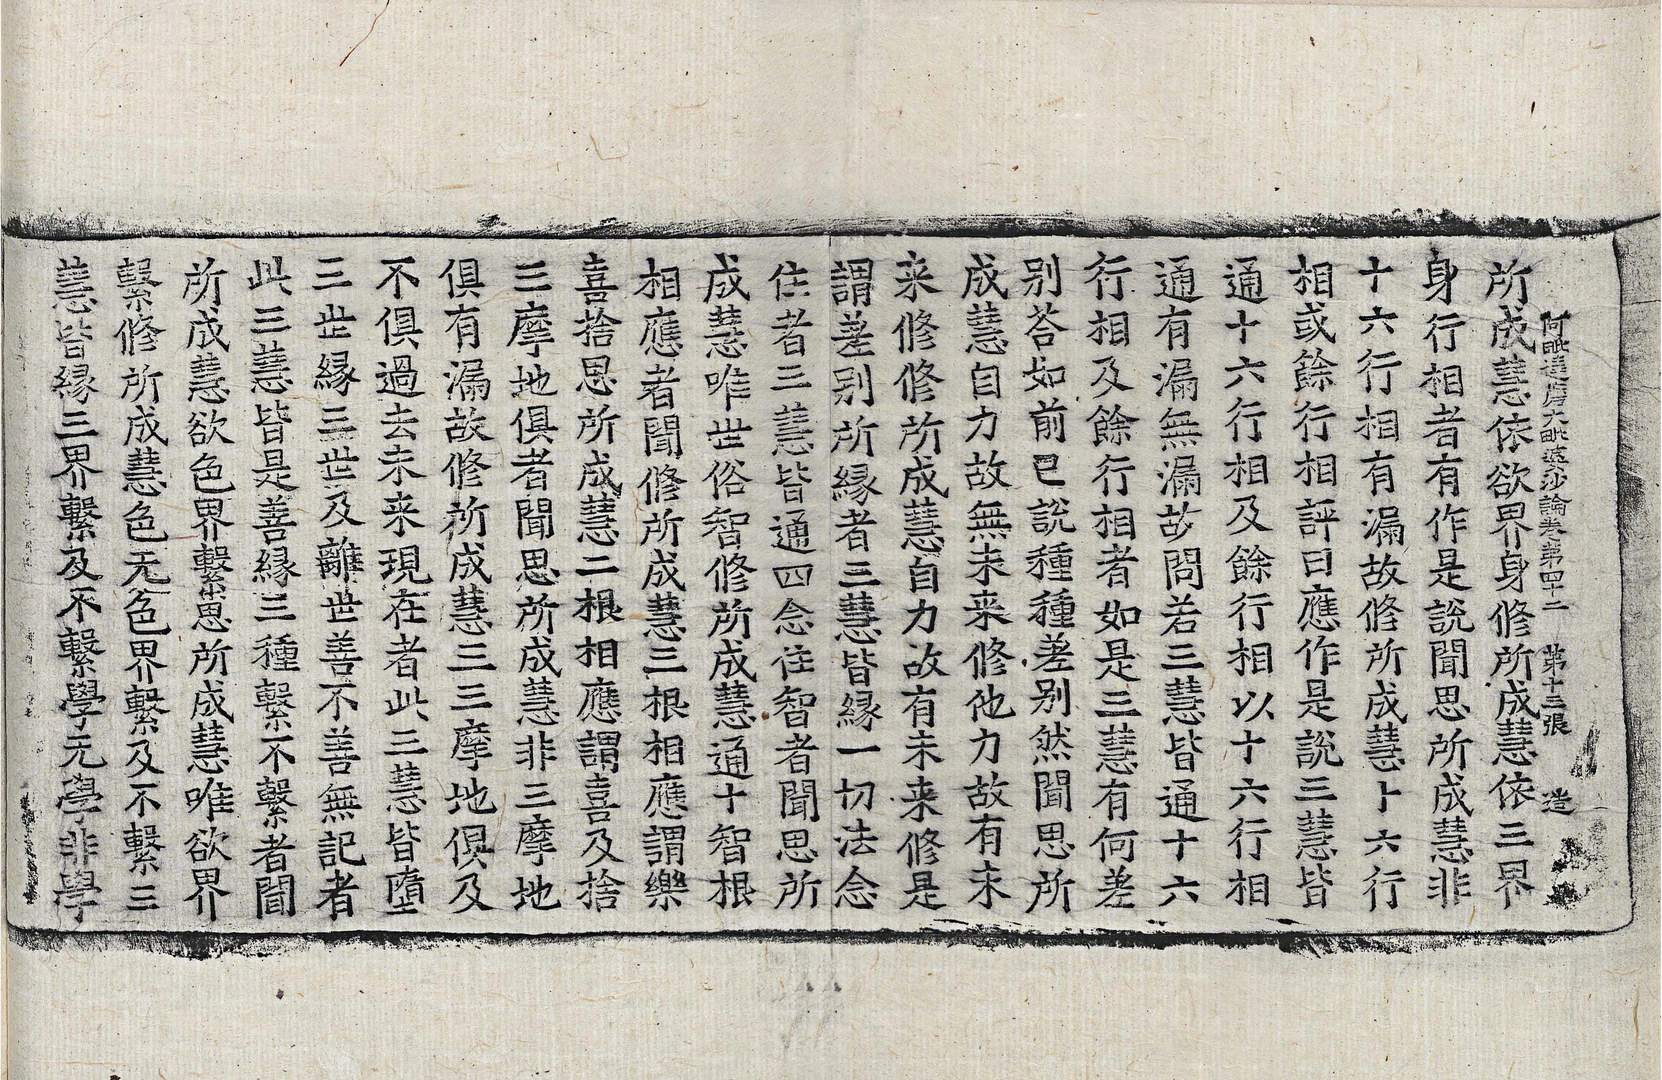 阿毗達磨大毗婆沙論卷第四十二 第十三張 造
所成慧依欲界身修所成慧依三界
身行相者有作是說聞思所成慧非
十六行相有漏故修所成慧十六行
相或餘行相評曰應作是說三慧皆
通十六行相及餘行相以十六行相
通有漏無漏故問若三慧皆通十六
行相及餘行相者如是三慧有何差
别荅如前已說種種差别然聞思所
成慧自力故無未来修他力故有未
来修修所成慧自力故有未来修是
謂差别所縁者三慧皆縁一切法念
住者三慧皆通四念住智者聞思所
成慧唯世俗智修所成慧通十智根
相應者聞修所成慧三根相應謂樂
喜捨思所成慧二根相應謂喜及捨
三摩地俱者聞思所成慧非三摩地
俱有漏故修所成慧三三摩地俱及
不俱過去未来現在者此三慧皆墮
三世縁三世及離世善不善無記者
此三慧皆是善縁三種繫不繫者聞
所成慧欲色界繫思所成慧唯欲界
繫修所成慧色无色界繫及不繫三
慧皆縁三界繫及不繫學无學非學